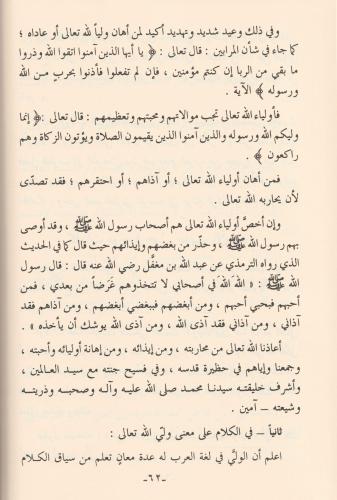 وفي ذلك وعيد شديد وتهديد أكيد لمن أهان ولياً لله تعالى أو عاداه ؛
كما جاء في شأن المرابين : قال تعالى : ﴿ يا أيها الذين آمنوا اتقوا الله وذروا
ما بقي من الربا إن كنتم مؤمنين ، فإن لم تفعلوا فأذنوا بحرب من الله
ورسوله ﴾ الآية .
فأولياء الله تعالى تجب موالاتهم ومحبتهم وتعظيمهم : قال تعالى : ﴿ إنما
وليكم الله ورسوله والذين آمنوا الذين يقيمون الصلاة ويؤتون الزكاة وهم
راكعون ﴾ .
فمن أهان أولياء الله تعالى ؛ أو آذاهم ؛ أو احتقرهم ؛ فقد تصدّى
لأن يحاربه الله تعالى .
وإن أخصَّ أولياء الله تعالى هم أصحاب رسول الله ﷺ ، وقد أوصى
بهم رسول الله ﷺ ، وحذّر من بغضهم وإيذائهم حيث قال كما في الحديث
الذي رواه الترمذي عن عبد الله بن مغفَّل رضي الله عنه قال : قال رسول
الله ﷺ : « الله الله في أصحابي لا تتخذوهم غَرَضاً من بعدي ، فمن
أحبهم فبحبي أحبهم ، ومن أبغضهم فببغضي أبغضهم ، ومن آذاهم فقد
آذاني ، ومن آذاني فقد آذى الله ، ومن آذى الله يوشك أن يأخذه » .
أعاذنا الله تعالى من محاربته ، ومن إيذائه ، ومن إهانة أوليائه وأحبته ،
وجمعنا وإياهم في حظيرة قدسه ، وفي فسيح جنته مع سيد العالمين ،
وأشرف خليقته سيدنا محمد صلى الله عليه وآله وصحبه وذريته
وشيعته ــ آمين .
ثانياً ــ في الكلام على معنى وليّ الله تعالى :
اعلم أن الوليَّ في لغة العرب له عدة معانٍ تعلم من سياق الكلام
-٦٢-